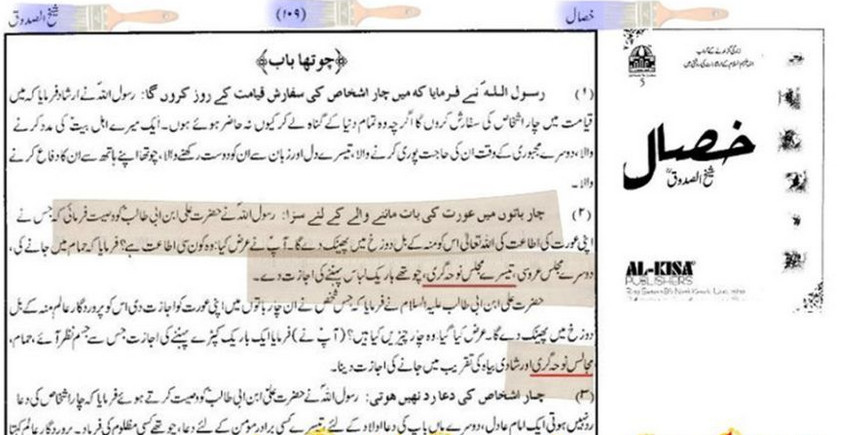 خصال
(۱۰۹)
شیخ الصدوقؒ
﴿چوتھا باب﴾
(۱) رسول اللہؐ نے فرمایا کہ میں چار اشخاص کی سفارش قیامت کے روز کروں گا: رسول اللہؐ نے ارشاد فرمایا کہ میں
قیامت میں چار اشخاص کی سفارش کروں گا اگرچہ وہ تمام دنیا کے گناہ لے کر کیوں نہ حاضر ہوئے ہوں۔ ایک میرے اہل بیتؑ کی مدد کرنے
والا، دوسرے مجبوری کے وقت ان کی حاجت پوری کرنے والا، تیسرے دل اور زبان سے ان کو دوست رکھنے والا، چوتھا اپنے ہاتھ سے ان کا دفاع کرنے
والا۔
(۲) چار باتوں میں عورت کی بات ماننے والے کے لئے سزا: رسول اللہؐ نے حضرت علی ابن ابی طالبؑ کو وصیت فرمائی کہ جس نے
اپنی عورت کی اطاعت کی اللہ تعالیٰ اس کو منہ کے بل دوزخ میں پھینک دے گا۔ آپؑ نے عرض کیا: وہ کون سی اطاعت ہے؟ فرمایا کہ حمام میں جانے کی،
دوسرے مجلس عروسی، تیسرے مجلس نوحہ گری، چوتھے باریک لباس پہننے کی اجازت دے۔
حضرت علی ابن ابی طالب علیہ السلام نے فرمایا کہ جس شخص نے ان چار باتوں میں اپنی عورت کو اجازت دی اس کو پروردگار عالم منہ کے بل
دوزخ میں پھینک دے گا۔ عرض کیا گیا: وہ چار چیزیں کیا ہیں؟ (آپؑ نے) فرمایا ایک باریک کپڑے پہننے کی اجازت جس سے جسم نظر آئے، حمام،
مجالس نوحہ گری اور شادی بیاہ کی تقریب میں جانے کی اجازت دینا۔
(۳) چار اشخاص کی دعا رد نہیں ہوتی: رسول اللہؐ نے حضرت علی ابن ابی طالبؑ کو وصیت کرتے ہوئے فرمایا کہ چار اشخاص کی دعا
رد نہیں ہوتی ایک امام عادل، دوسرے ماں باپ کی دعا اولاد کے لئے، تیسرے کسی برادر مؤمن کے لئے دعا، چوتھے کسی مظلوم کی فریاد۔ پروردگار عالم کہتا
خصال
شیخ الصدوقؒ
AL-KISA
PUBLISHERS